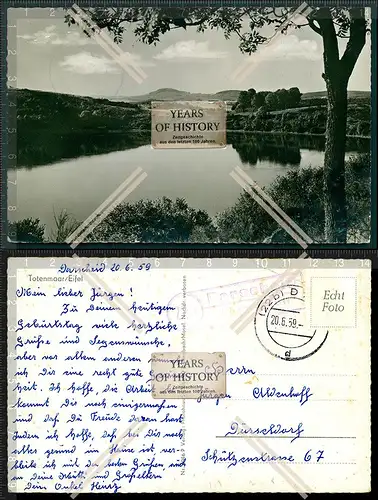 YEARS
of HISTORY
Zeitgeschichte
aus den letzten 100 Jahren
Totenmaar/Eifel
Darscheid 20.6.59
Mein lieber Jürgen!
Zu Deinem heutigen
Geburtstag viele herzliche
Grüße und Segenswünsche,
aber vor allem anderen
ich Dir eine recht gute
heit. Ich hoffe, die Arbeit
kommt Dir noch einigermaßen
und daß Du Freude daran hast.
Zudem ich hoffe, daß bei Dir noch
alles gesund im Hause ist, ver-
bleibe ich mit den besten Grüßen auch
an Deine Mutti und Großeltern
Dein Onkel Heinz
YEARS
of HISTORY
Zeitgeschichte
aus den letzten 100 Jahren
20.6.59
d
Echt
Foto
Herrn
Jürgen Oldenhoff
Düsseldorf
Schützenstrasse 67